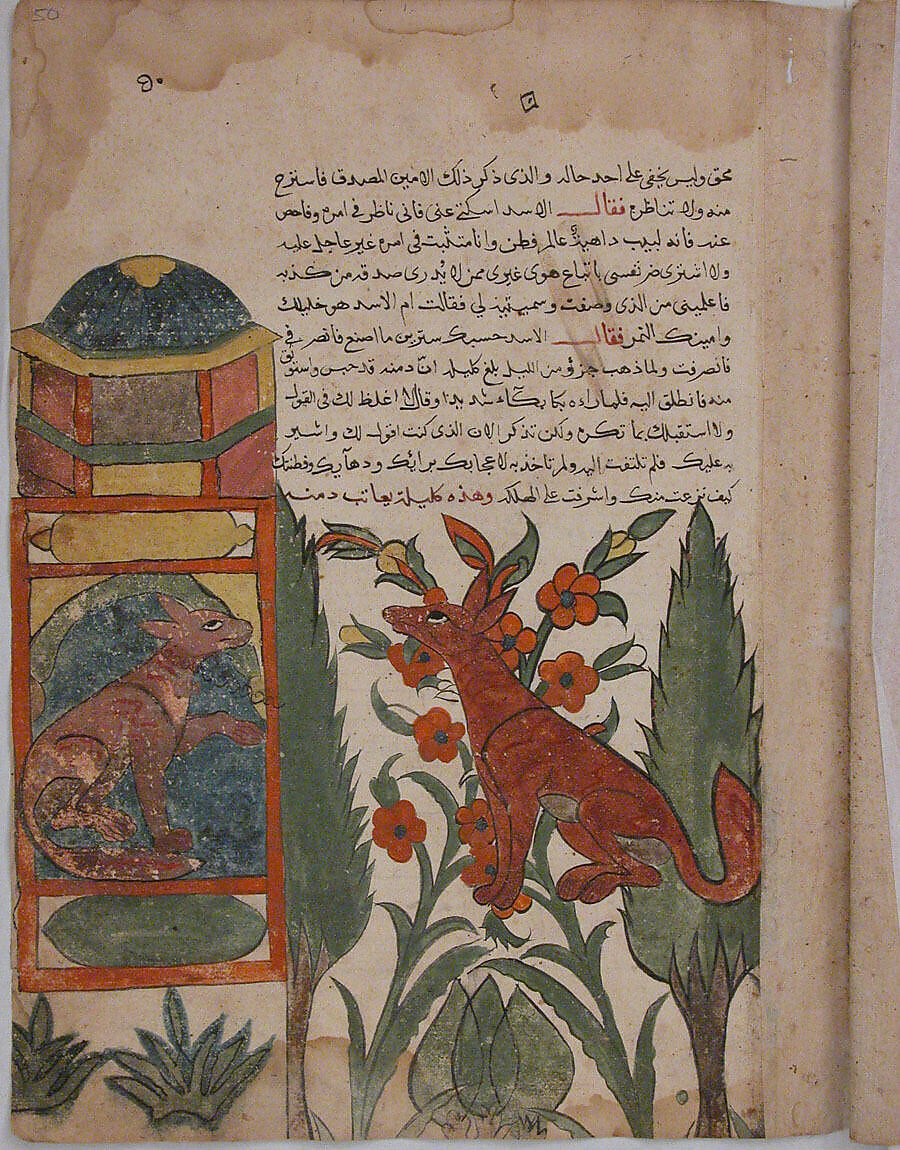 50
محق وليس يخفى على احد حاله والذى ذكر ذلك الامين المصدق فاسترح
منه ولا تناظره فقال الاسد اسكتى عنى فانى ناظر فى امره وفاحص
عنه فانه لبيب داهية عالم فطن وانا متثبت فى امره غير عاجل عليه
ولا اشترى ضر نفسى باتباع هوى غيرى ممن لا يدرى صدقه من كذبه
فاعلمينى من الذى وصفت وسميتيه لي فقالت ام الاسد هو خليلك
وامينك النمر فقال الاسد حسبك سترين ما اصنع فانصرفى
فانصرفت ولما ذهب جزؤ من الليل بلغ كليله ان دمنه قد حبس واستوثق
منه فانطلق اليه فلما راه بكا بكاء شديدا وقال لا اغلظ لك فى القول
ولا استقبلك بما تكره ولكن تذكر الان الذى كنت اقول لك واشير
به عليك فلم تلتفت اليه ولم تاخذ به لاعجابك برايك ودهايك وفطنتك
كيف نزعت منك واشرفت على الهلكه وهذه كليلة يعاتب دمنه